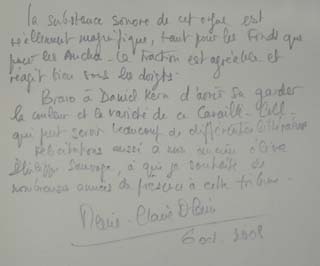 la substance sonore de cet orgue est
réellement magnifique, tant pour les Fonds que
pour les Anches - la traction est agréable et
réagit bien sous les doigts.
Bravo à Daniel Kern d'avoir su garder
la couleur et la variété de ce Cavaillé-Coll
qui peut servir beaucoup de différentes littératures
Félicitations aussi à mon ancien élève
Philippe Sauvage, à qui je souhaite de
nombreuses années de présence à cette tribune.
Marie-Claire Alain
6 oct. 2008